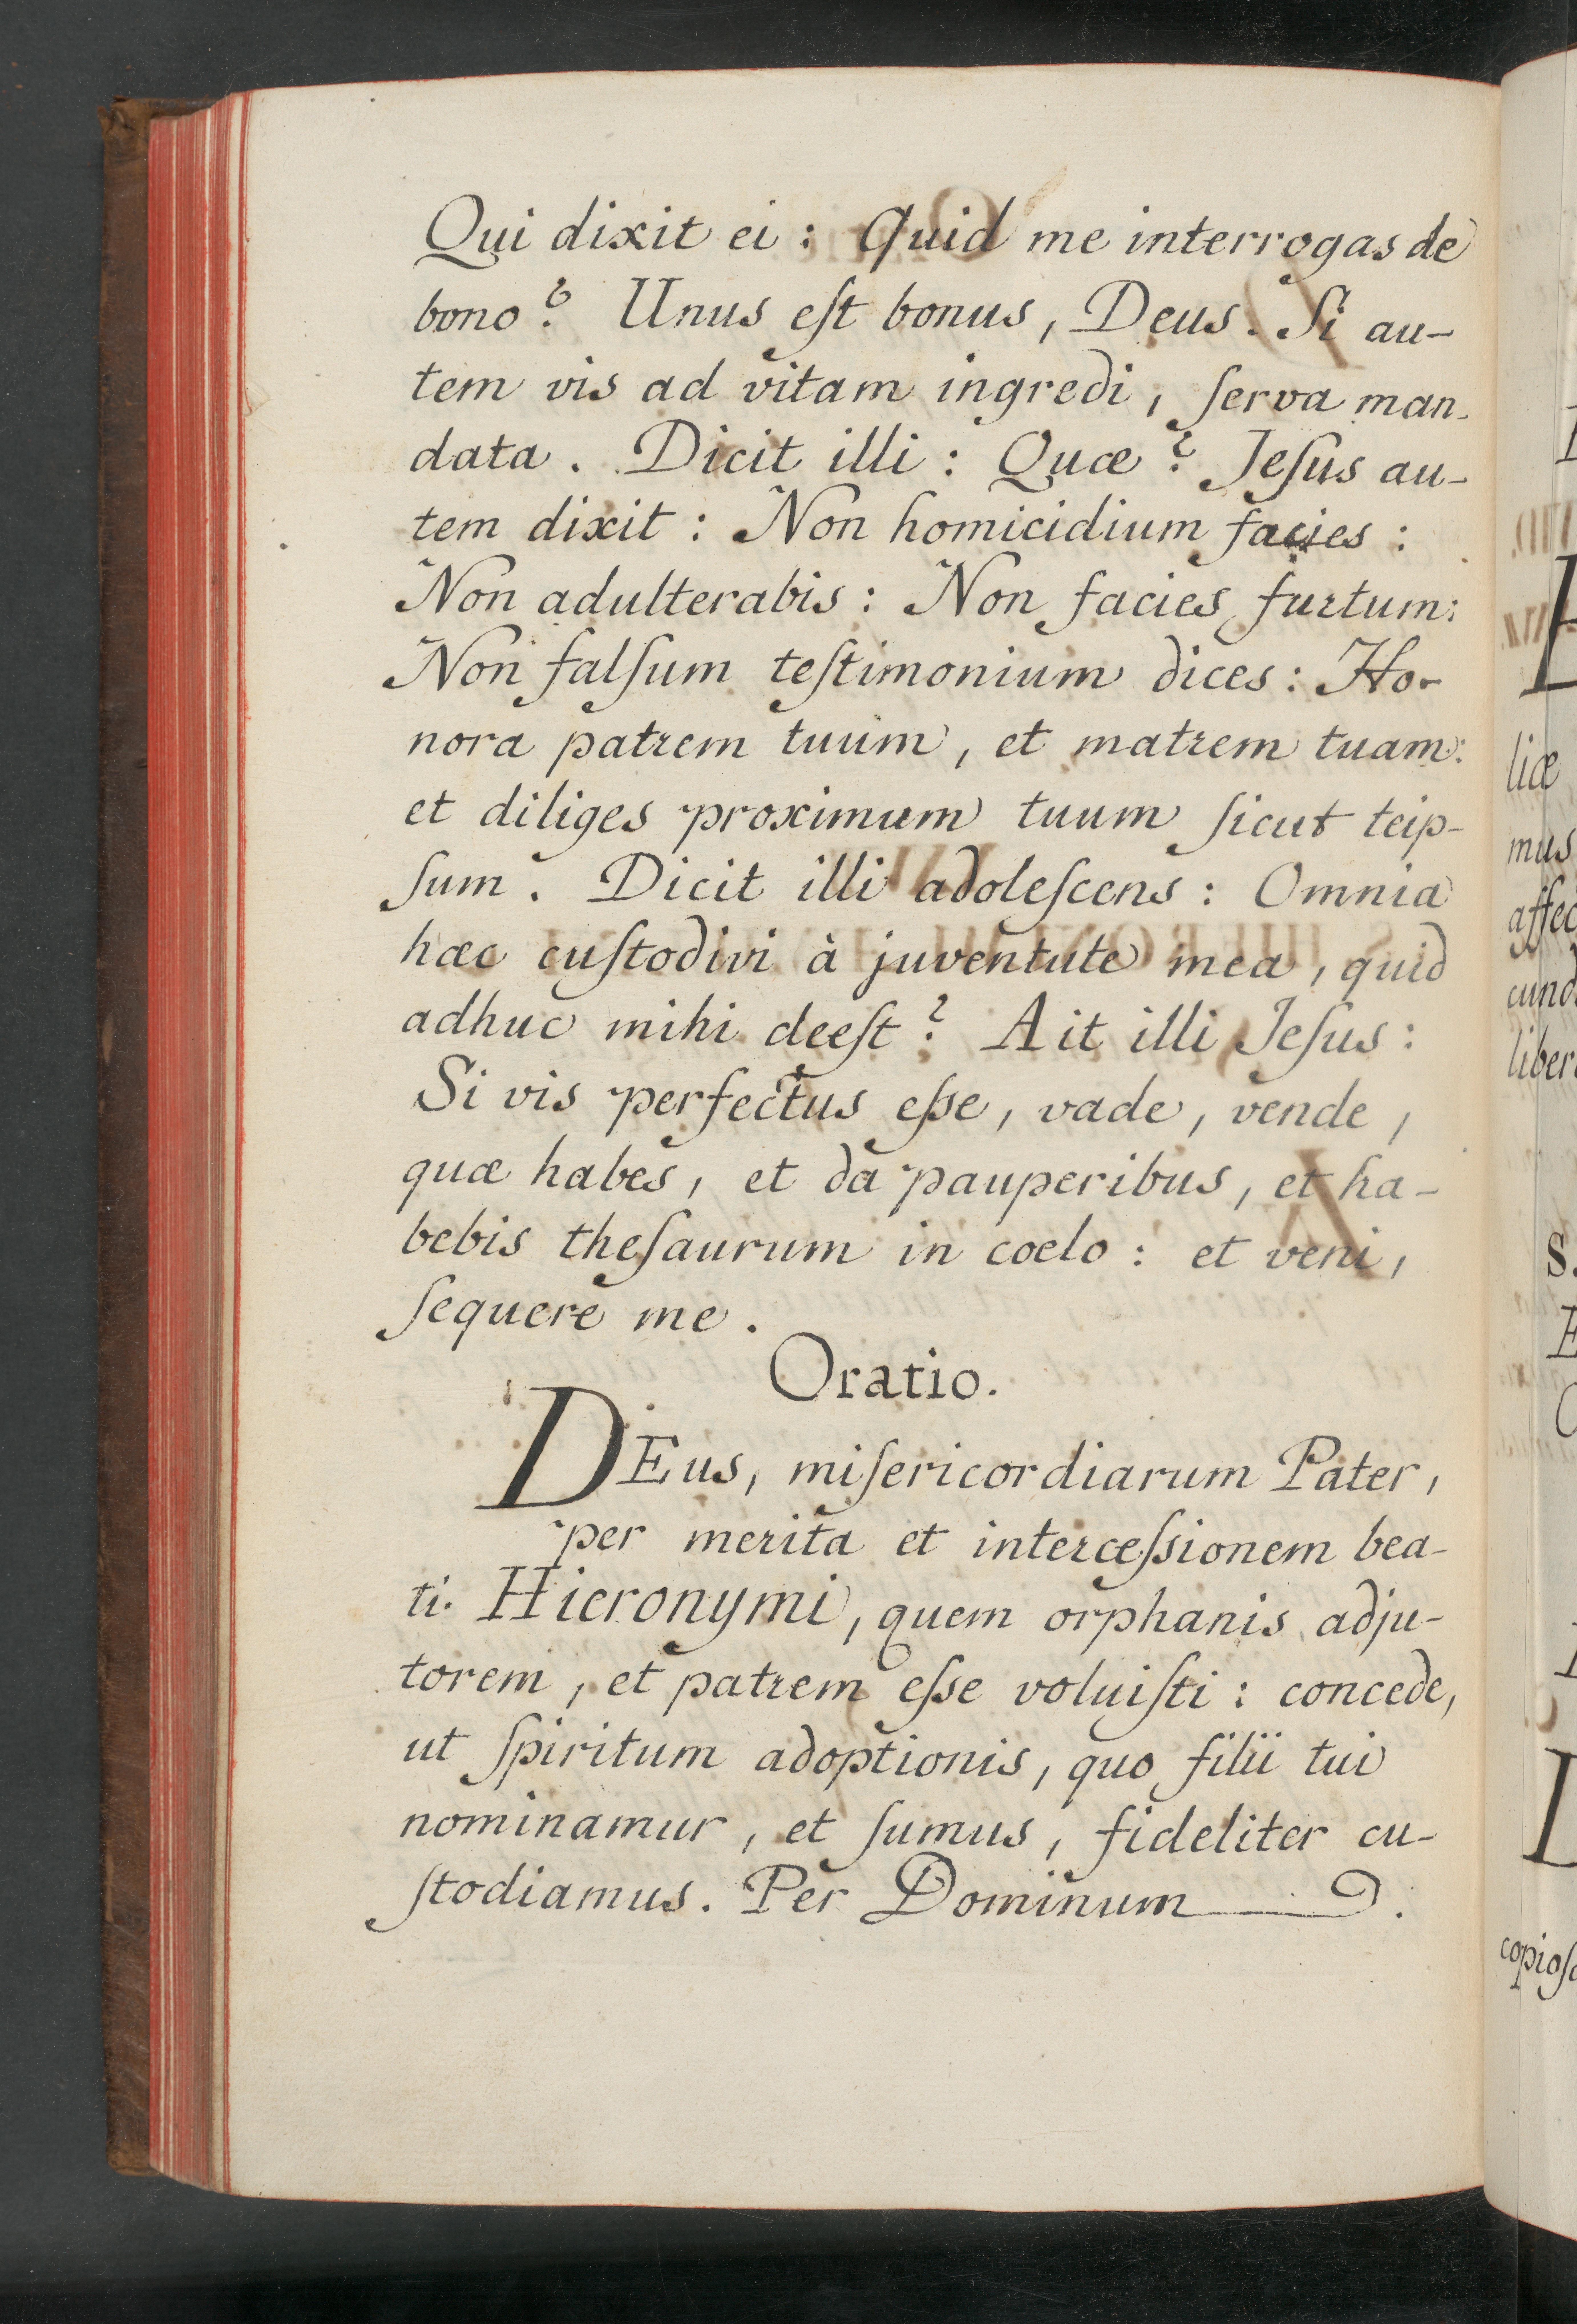 Qui dixit ei : Quid me interrogas de
bono ? Unus eſt bonus , Deus . Si au-
tem vis ad vitam ingredi , ſerva man-
data . Dicit illi : Quæ ? Jeſus au-
tem dixit : Non homicidium facies :
Non adulterabis : Non facies furtum :
Non falſum teſtimonium dices : Ho-
nora patrem tuum , et matrem tuam :
et diliges proximum tuum ſicut teip-
ſum . Dicit illi adoleſcens : Omnia
hæc cuſtodivi à juventute mea , quid
adhuc mihi deeſt ? Ait illi Jeſus :
Si vis perfectus eſse , vade , vende ,
quæ habes , et da pauperibus , et ha-
bebis theſaurum in coelo : et veni ,
ſequere me .
Oratio.
DEus, miſericordiarum Pater ,
per merita et interceſsionem bea-
ti Hieronymi , quem orphanis adju-
torem , et patrem eſse voluiſti : concede,
ut ſpiritum adoptionis , quo filii tui
nominamur , et ſumus , fideliter cu-
ſtodiamus . Per Dominum
liæ
mus
affec
cund
liber
S.
copioſ